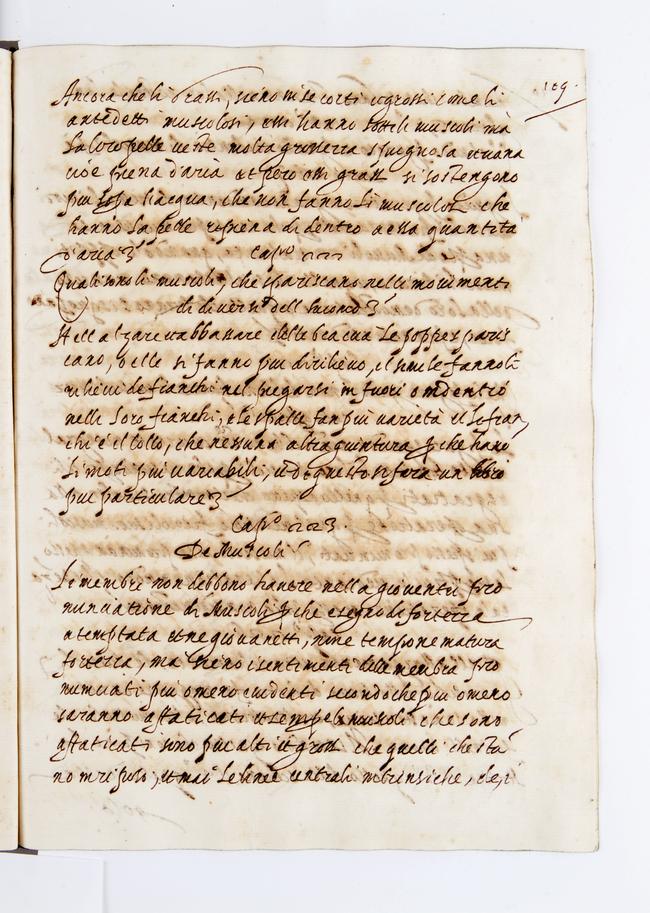 109
Ancora che li Grassi, sieno in se corti et grossi come li
antedetti muscolosi, essi hanno sottili muscoli mà
la loro pelle veste molta grossezza spugnosa et uana
cioè piena d'aria et però essi grassi si sostengono
piu sopra l'acqua, che non fanno li muscolosi che
hanno la pelle ripiena di dentro quantità
d'aria
Quali sono li muscoli, che spariscano nelli movimenti
di diversi dell'huomo
Nell'alzare et abbassare delle braccia Le poppe spari
scano, o elle si fanno piu di rilievo, il simile fanno li
rilievi de fianchi nel piegarsi in fuori o in dentro
nelli loro fianchi, et le spalle fan piu varietà
che è il collo, che nessuna altra giuntura che hano
Li moti piu variabili, et di questo si farà un libro
piu particulare
Cap.º
De Muscoli
Le membri non debbono havere nella gioventù pro
nuncatione di Muscoli che è segno di fortezza
attempata et ne giovanetti, nin'è tempo ne matura
fortezza, ma sieno i sentimenti delle membra pro
nunciati piu o meno evidenti secondo che piu o meno
saranno affaticati et sempre li muscoli che sono
affaticati sono piu alti et grossi che quelli che stà
no in riposo, et mai Le linee centrali intrinsiche, de i